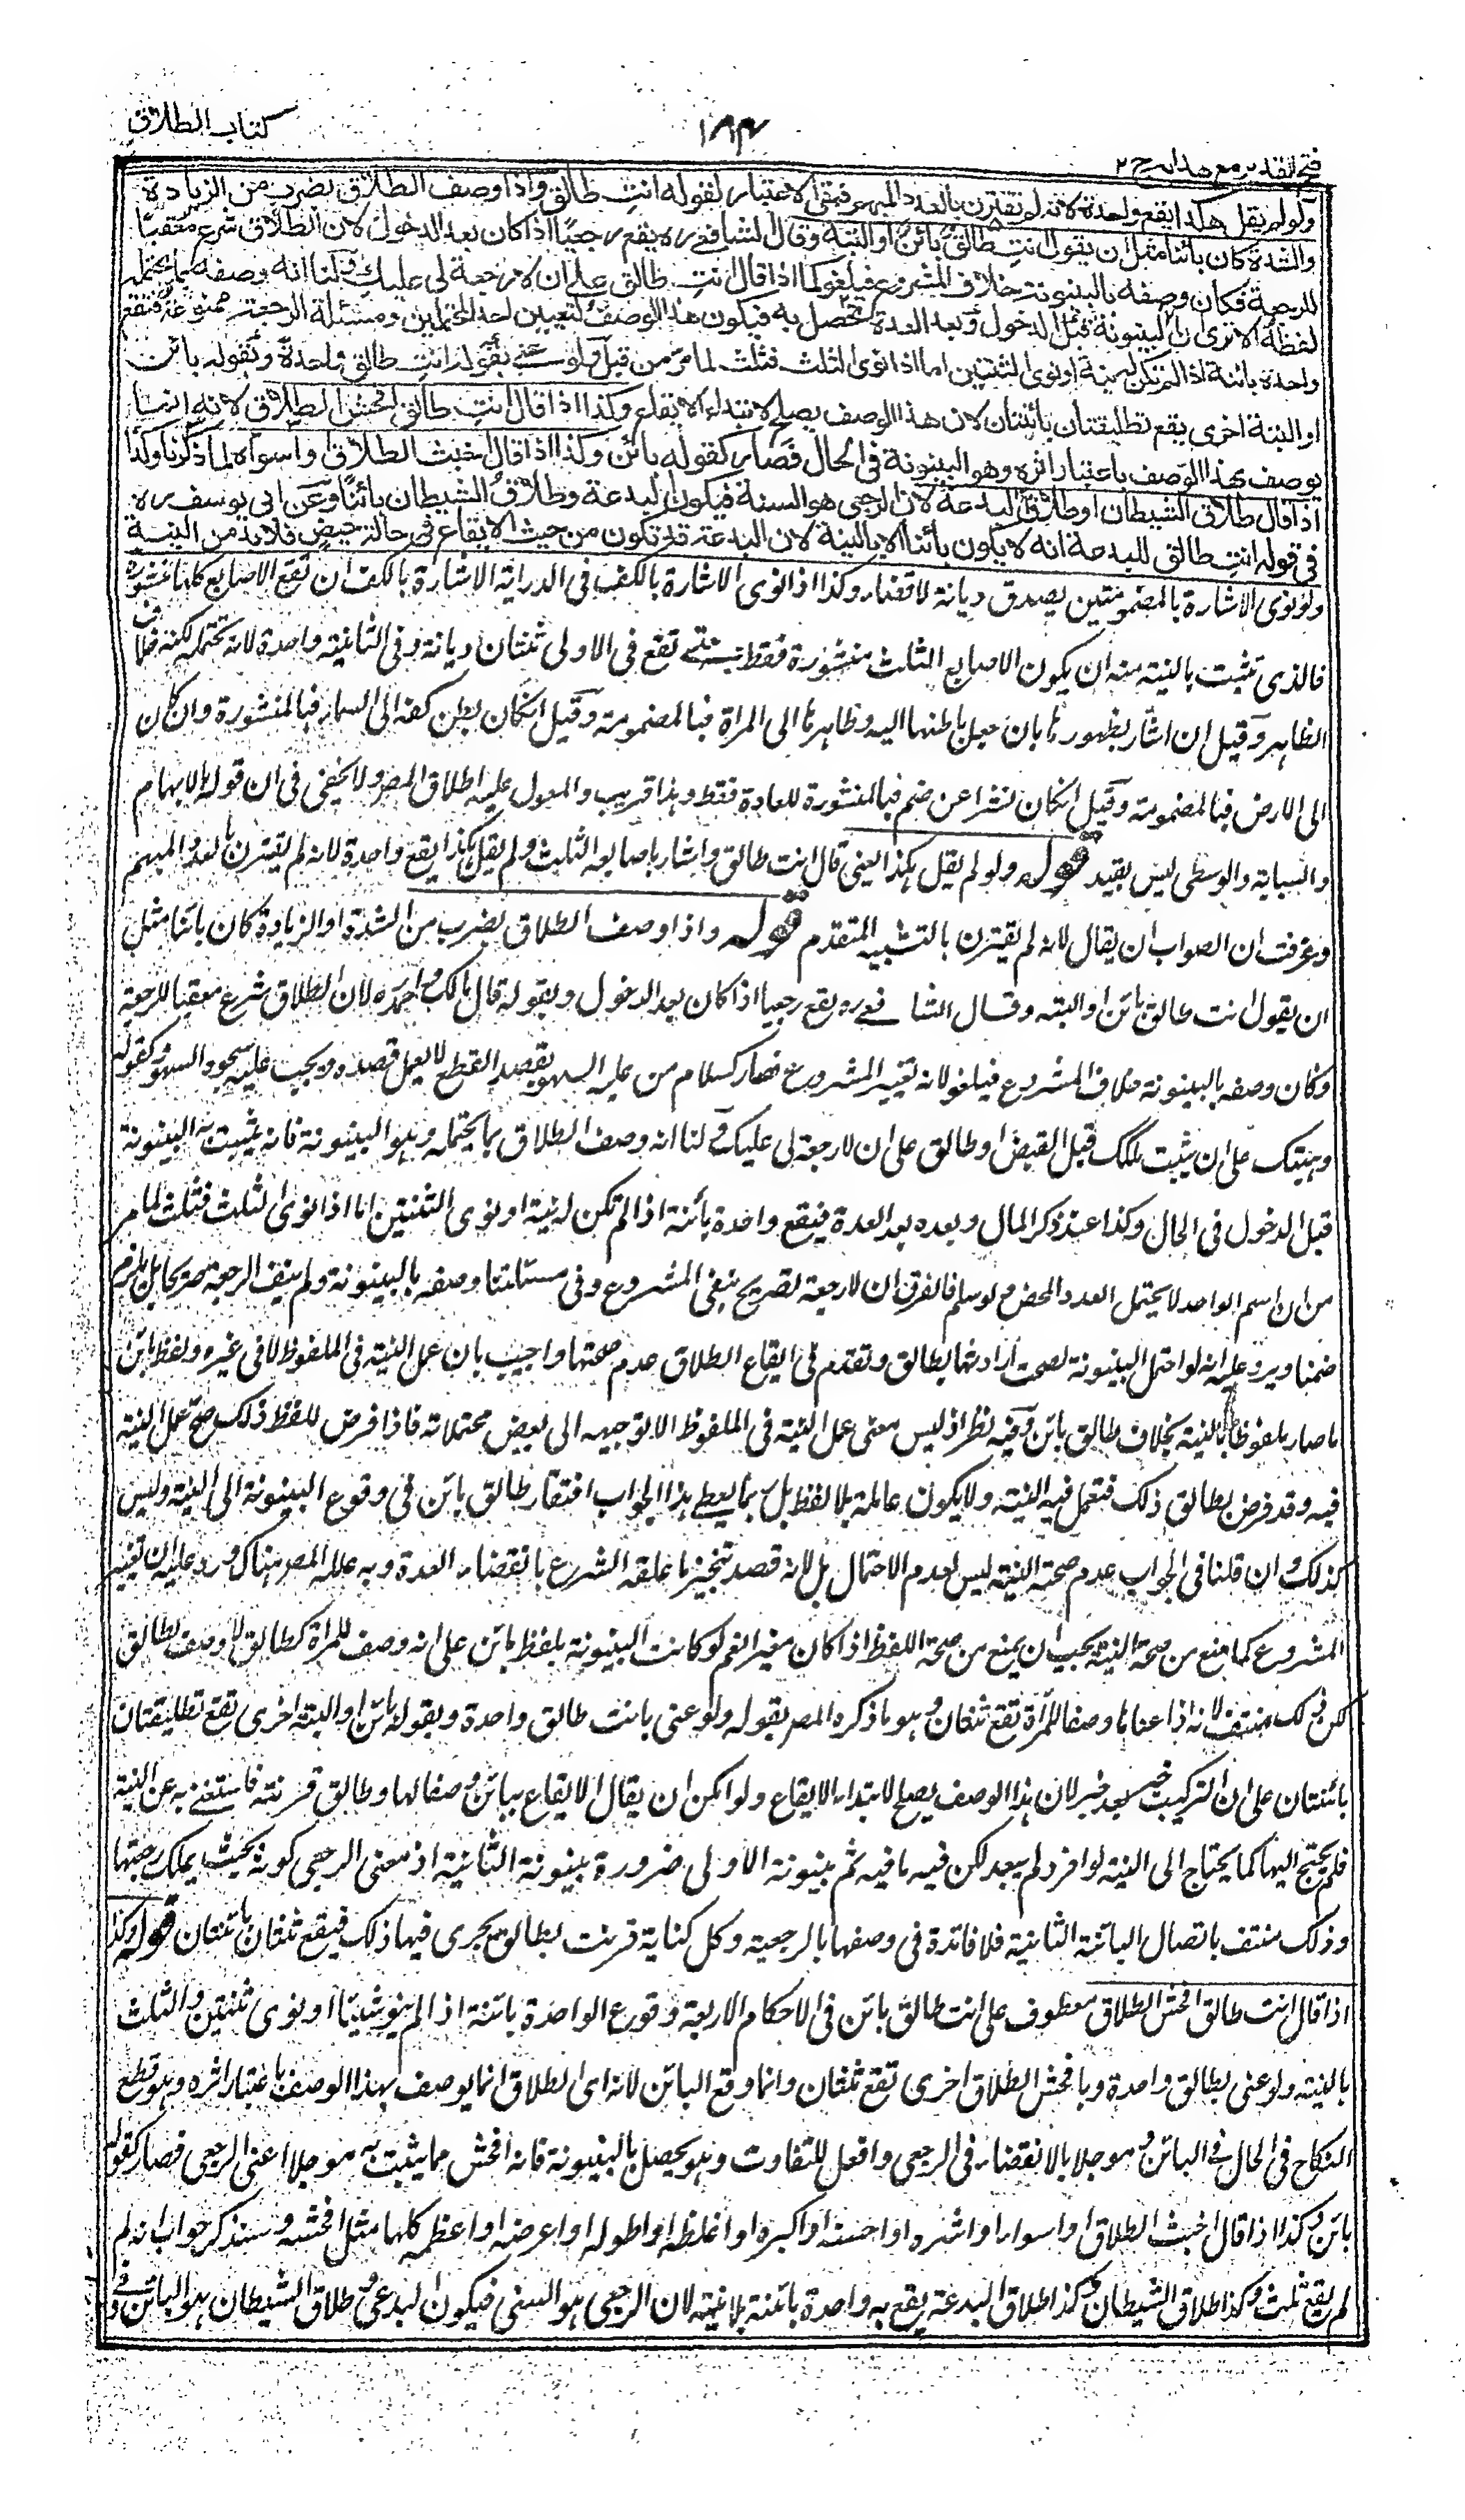 فتح القدير مع هدايه ج ٢
١٨٣
كتاب الطلاق
ولو لم يقل هكذا يقع واحدة لانه لم تقترن بالعدد المبهم فبقى الاعتبار لقوله انت طالق واذا وصف الطلاق بضرب من الزيادة
والشدة كان بائنا مثل ان يقول انت طالق بائن او البتة وقال الشافعى ره يقع رجعيا اذا كان بعد الدخول لان الطلاق شرع معقبا
للرجعة فكان وصفه بالبينونة خلاف المشروع فيلغو كما اذا قال انت طالق على ان لا رجعة لى عليك ولنا انه وصفه بما يحتمله
لفظه الا ترى ان البينونة قبل الدخول وبعد العدة تحصل به فيكون هذا الوصف لتعيين احد المحتملين ومسئلة الرجعة ممنوعة فتقع
واحدة بائنة اذا لم تكن له نية او نوى الثنتين اما اذا نوى الثلث فثلث لما مر من قبل ولو عنى بقوله انت طالق واحدة وبقوله بائن
او البتة اخرى يقع تطليقتان بائنتان لان هذا الوصف يصلح لابتداء الايقاع وكذا اذا قال انت طالق افحش الطلاق لانه انما
يوصف بهذا الوصف باعتبار اثره وهو البينونة فى الحال فصار كقوله بائن وكذا اذا قال اخبث الطلاق واسواه لما ذكرنا وكذا
اذا قال طلاق الشيطان او طلاق البدعة لان الرجعى هو السنة فيكون البدعة وطلاق الشيطان بائنا وعن ابى يوسف ره
فى قوله انت طالق للبدعة انه لا يكون بائنا الا بالنية لان البدعة قد تكون من حيث الايقاع فى حالة حيض فلا بد من النية
ولو نوى الاشارة بالمضمومتين يصدق ديانة لا قضاء وكذا اذا نوى الاشارة بالكف فى الدراية الاشارة بالكف ان تقع الاصابع كلها منشورة
فالذى تثبت بالنية منه ان يكون الاصابع الثلث منشورة فقط حتى تقع فى الاولى ثنتان ديانة وفى الثانية واحدة لانه تحتمله لكنه خلاف
الظاهر وقيل ان اشار بظهورها بان جعل باطنها اليه وظاهرها الى المراة فبالمضمومة وقيل انكان بطن كفه الى السماء فبالمنشورة وان كان
الى الارض فبالمضمومة وقيل انكان نشرا عن ضم فبالمنشورة للعادة فقط وهذا قريب والمعول عليه اطلاق المصر ولا يخفى فى ان قوله الابهام
والسبابة والوسطى ليس بقيد قوله ولو لم يقل هكذا يعنى قال انت طالق واشار باصابعه الثلث ولم يقل هكذا يقع واحدة لانه لم يقترن بالعدد المبهم
وعرفت ان الصواب ان يقال لانه لم يقترن بالتشبيه المتقدم قوله واذا وصف الطلاق بضرب من الشدة او الزيادة كان بائنا مثل
ان يقول انت طالق بائن او البتة وقال الشافعى ره يقع رجعيا اذا كان بعد الدخول وبقوله قال مالك واحمد ره لان الطلاق شرع معقبا للرجعة
وكان وصفه بالبينونة خلاف المشروع فيلغو لانه تغيير المشروع فصار كسلام من عليه السهو بقصد القطع لا يعمل قصده ويجب عليه سجود السهو وكقوله
وهبتك على ان يثبت ملكك قبل القبض او طالق على ان لا رجعة لى عليك ولنا انه وصف الطلاق بما يحتمله وهو البينونة فانه يثبت به البينونة
قبل الدخول فى الحال وكذا عند ذكر المال وبعده بعد العدة فيقع واحدة بائنة اذا لم تكن له نية او نوى الثنتين اما اذا نوى الثلث فثلث لما مر
من ان اسم الواحد لا يحتمل العدد المحض ولو سلم فالفرق ان لا رجعة تصريح بنفى المشروع وفى مسئلتنا وصفه بالبينونة ولم ينف الرجعة صريحا بل يلزم
ضمنا ويرد عليه انه لو احتمل البينونة لصحت ارادتها بطالق وتقدم فى ايقاع الطلاق عدم صحتها واجيب بان عمل النية فى الملفوظ لا فى غيره ولفظ بائن
ما صار ملفوظا بالنية بخلاف طالق بائن وفيه نظر اذ ليس معنى عمل النية فى الملفوظ الا توجيهه الى بعض محتملاته فاذا فرض للفظ ذلك صح عمل النية
فيه وقد فرض بطالق ذلك فتعمل فيه النية ولا يكون عاملة بلا لفظ بل ربما يعطى هذا الجواب افتقار طالق بائن فى وقوع البينونة الى النية وليس
كذلك وان قلنا فى الجواب عدم صحة النية ليس لعدم الاحتمال بل لانه قصد تنجيز ما علقه الشرع بانقضاء العدة وبه علله المصر هناك ورد عليه ان تغيير
المشروع كما منع من صحة النية يجب ان يمنع من صحة اللفظ اذا كان مغيرا نعم لو كانت البينونة بلفظ بائن على انه وصف للمراة كطالق لا وصف لطالق
لكن ذلك منتف لانه اذا عنا ما وصفا للمرأة تقع ثنتان وهو ما ذكره المصر بقوله ولو عنى بانت طالق واحدة وبقوله بائن او البتة اخرى تقع تطليقتان
بائنتان على ان التركيب خبر بعد خبر لان هذا الوصف يصلح لابتداء الايقاع ولو امكن ان يقال الايقاع ببائن وصفا لها وطالق قرينته فاستغنى به عن النية
فلم يحتج اليها كما يحتاج الى النية لو افرد لم يبعد لكن فيه ما فيه ثم بينونة الاولى ضرورة بينونة الثانية اذ معنى الرجعى كونه بحيث يملك رجعتها
وذلك منتف باتصال البائنة الثانية فلا فائدة فى وصفها بالرجعية وكل كناية قرنت بطالق يجرى فيها ذلك فيقع ثنتان بائنتان قوله وكذا
اذا قال انت طالق افحش الطلاق معطوف على انت طالق بائن فى الاحكام الاربعة وقوع الواحدة بائنة اذا لم ينو شيئا او نوى ثنتين والثلث
بالنية ولو عنى بطالق واحدة وبافحش الطلاق اخرى تقع ثنتان وانما وقع البائن لانه اى الطلاق انما يوصف بهذا الوصف باعتبار اثره وهو قطع
النكاح فى الحال فى البائن ومؤجلا بالانقضاء فى الرجعى وافعل للتفاوت وهو يحصل بالبينونة فانه افحش مما يثبت به مؤجلا اعنى الرجعى فصار كقوله
بائن وكذا اذا قال اخبث الطلاق او اسواء او اشره او اخشنه او اكبره او اغلظه او اطوله او اعرضه او اعظمه كلها مثل افحشه وسنذكر جواب انه لم
لم يقع ثلث وكذا طلاق الشيطان وكذا طلاق البدعة يقع به واحدة بائنة بلا نية لان الرجعى هو السنى فيكون البدعى وطلاق الشيطان هو البائن